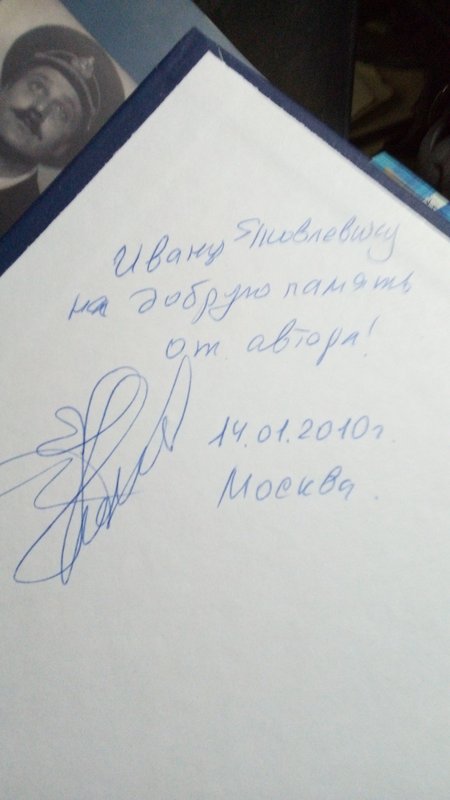 Ивану Яковлевичу
на добрую память
от автора!
14.01.2010г.
Москва.